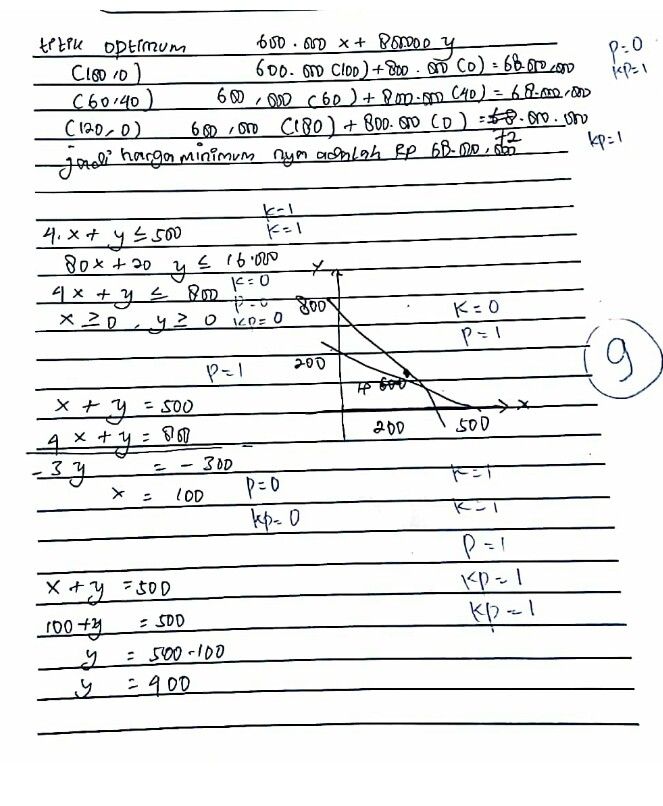 titik optimum 600.000 x + 800.000 y
P=0
(100,0) 600.000 (100) + 800.000 (0) = 68.000.000
KP=1
(60,40) 600,000 (60) + 800.000 (40) = 68.000.000
(120,0) 600,000 (180) + 800.000 (0) = 68.000.000
72
jadi harga minimum nya adalah Rp 68.000.000
KP=1
K=1
4.x + y ≤ 500 K=1
80x + 20 y ≤ 16.000
4x + y ≤ 800 K=0
P=0
x ≥ 0, y ≥ 0 KP=0
Y
800
K=0
P=1
200
P=1
9
X
200 500
x + y = 500
4x + y = 800
-3y = -300
x = 100
P=0
KP=0
K=1
K=1
P=1
KP=1
KP=1
x + y = 500
100+y = 500
y = 500-100
y = 900